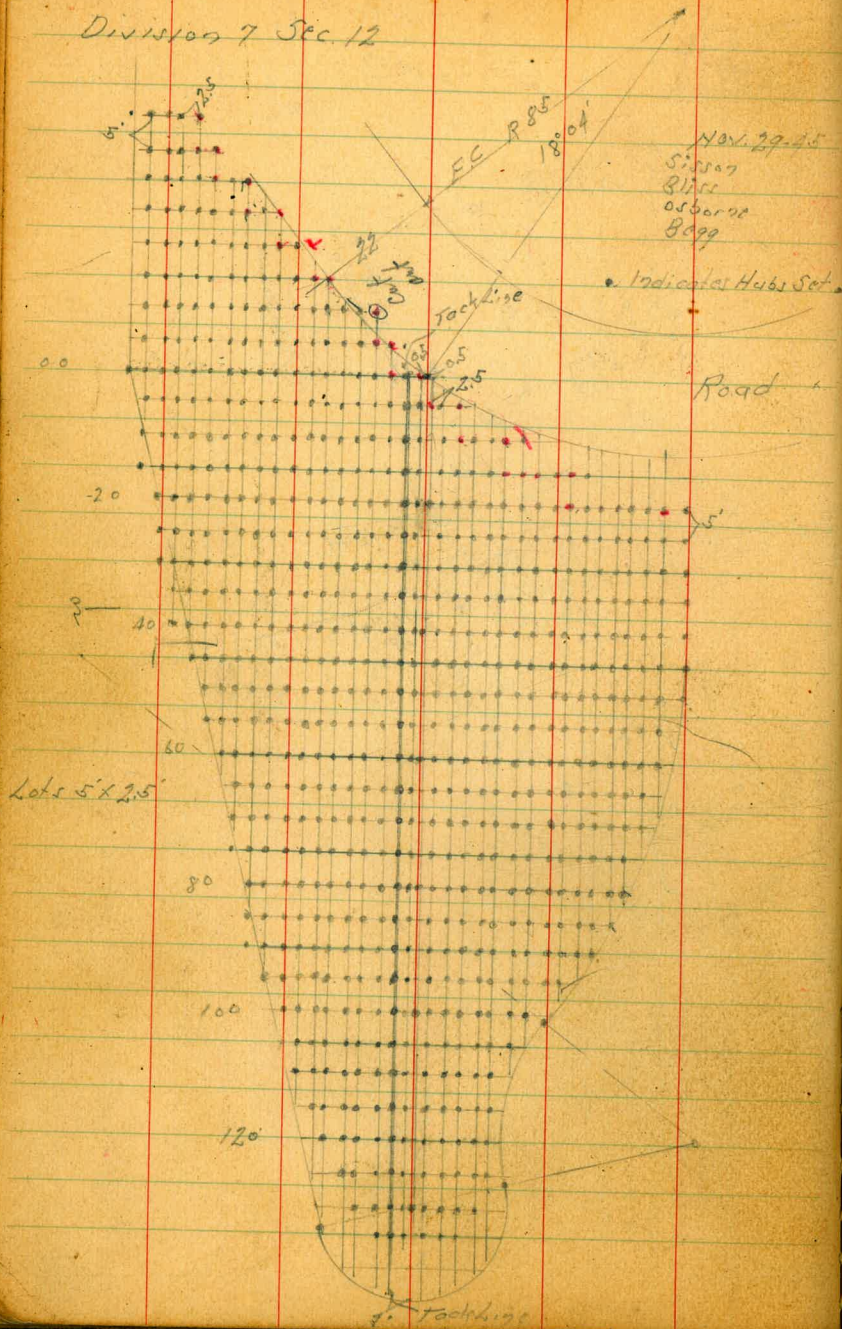 Division 7 Sec. 12
2.5
5'
E.C. R 85
18° 04'
Nov. 29-45
Sisson
Bliss
Osborne
Begg
22
• Indicates Hubs Set.
Tack Line
0.5
0.5
2.5
00
Road
-20
5'
40
60
Lots 5' x 2.5'
80
100
120
Tack Line